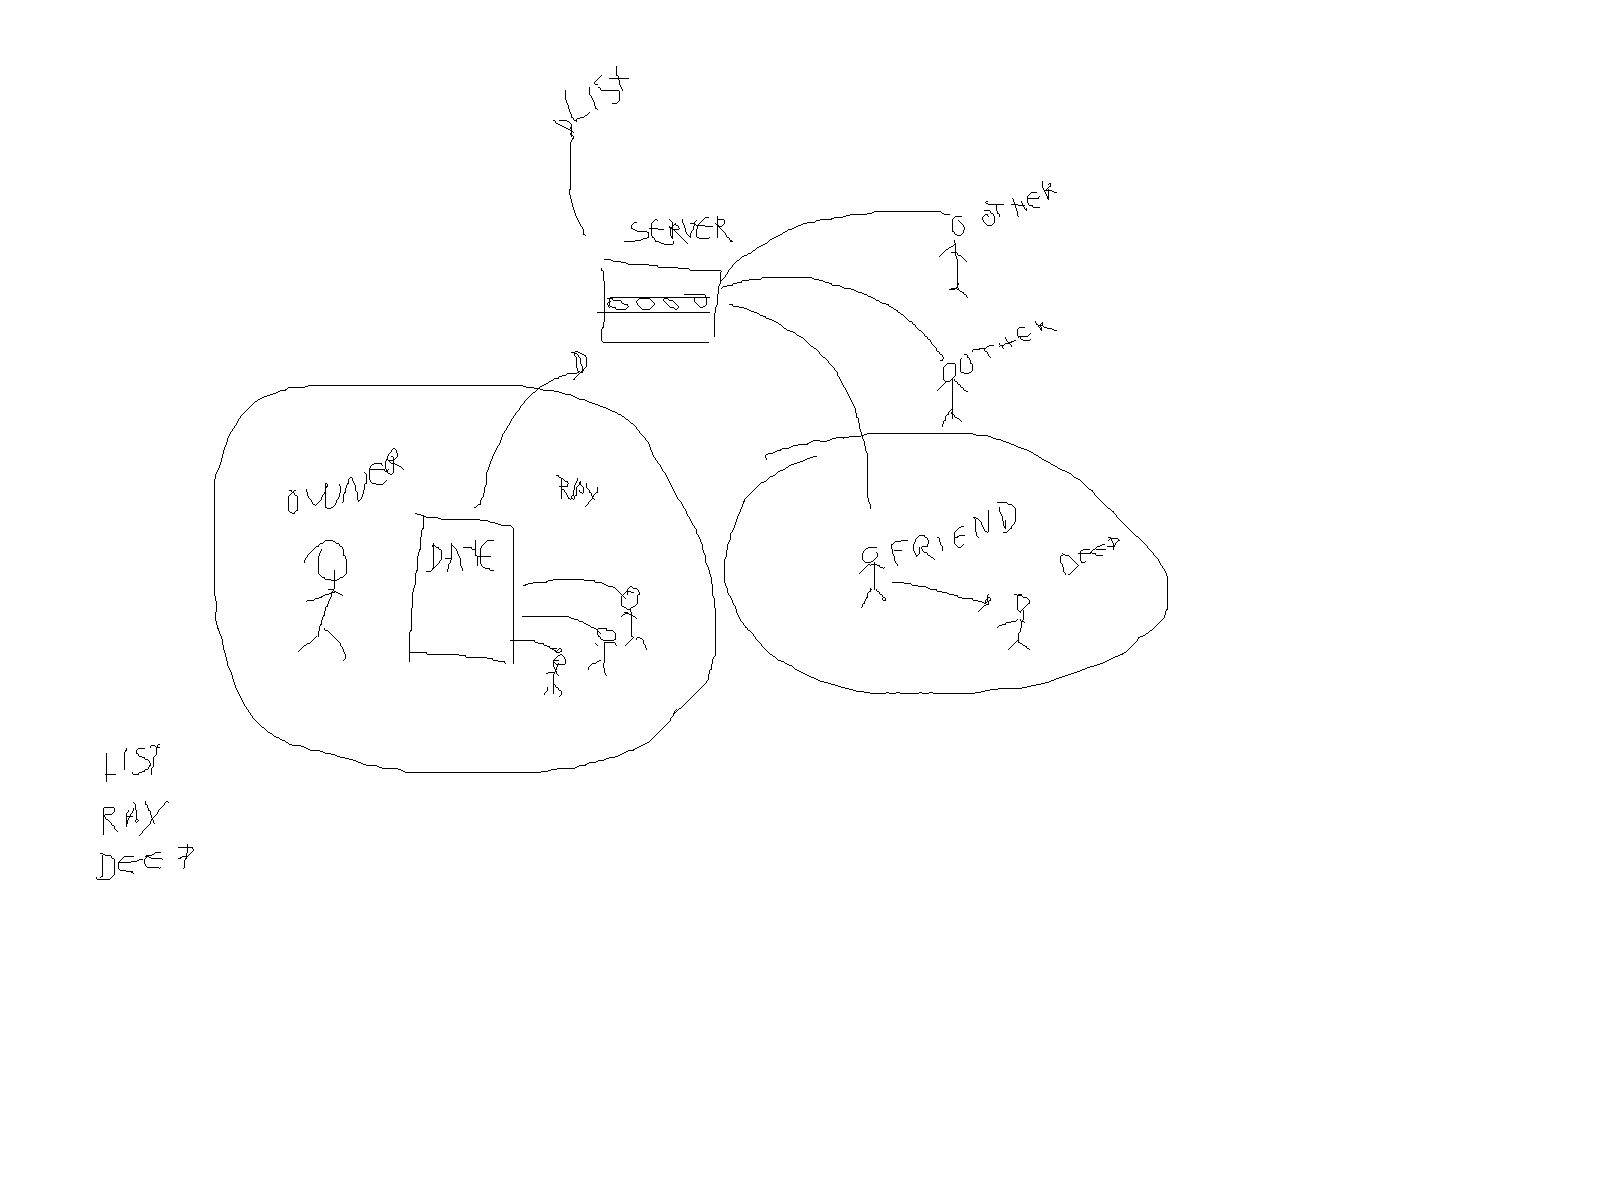 LIST
SERVER
OTHER
OTHER
OWNER
RAY
DATE
FRIEND
DEEP
LIST
RAY
DEEP